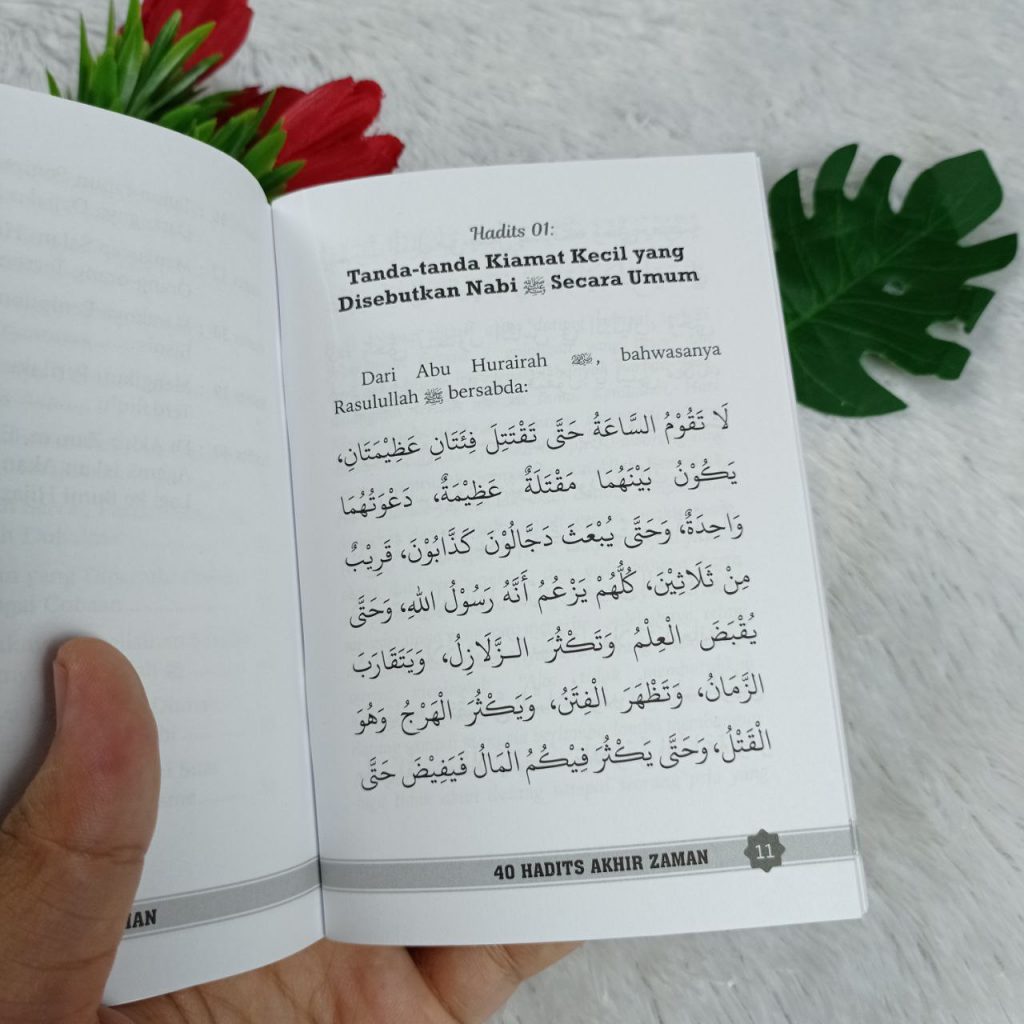 Hadits 01:
Tanda-tanda Kiamat Kecil yang
Disebutkan Nabi ﷺ Secara Umum
Dari Abu Hurairah , bahwasanya
Rasulullah ﷺ bersabda:
لَا تَقُوْمُ السَّاعَةُ حَتَّى تَقْتَتِلَ فِئَتَانِ عَظِيْمَتَانِ،
يَكُوْنُ بَيْنَهُمَا مَقْتَلَةٌ عَظِيْمَةٌ، دَعْوَتُهُمَا
وَاحِدَةٌ، وَحَتَّى يُبْعَثَ دَجَّالُوْنَ كَذَّابُوْنَ، قَرِيْبٌ
مِنْ ثَلَاثِيْنَ، كُلُّهُمْ يَزْعُمُ أَنَّهُ رَسُوْلُ اللهِ، وَحَتَّى
يُقْبَضَ الْعِلْمُ وَتَكْثُرَ الـزَّلَازِلُ، وَيَتَقَارَبَ
الزَّمَانُ، وَتَظْهَرَ الْفِتَنُ، وَيَكْثُرَ الْهَرْجُ وَهُوَ
الْقَتْلُ، وَحَتَّى يَكْثُرَ فِيْكُمُ الْمَالُ فَيَفِيْضَ حَتَّى
40 HADITS AKHIR ZAMAN 11